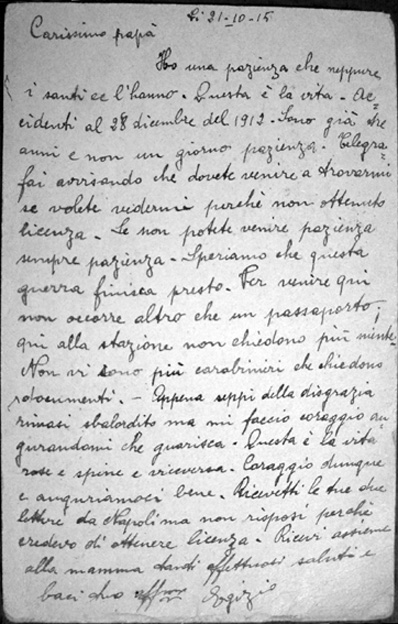 Lì 21-10-15
Carissimo papà
Ho una pazienza che neppure
i santi ce l'hanno - Questa è la vita - Ac-
cidenti al 28 dicembre del 1912 - Sono già tre
anni e non un giorno pazienza - Telegra-
fai avvisando che dovete venire a trovarmi
se volete vidermi perchè non ottenuto
licenza - Se non potete venire pazienza
sempre pazienza - Speriamo che questa
guerra finisca presto - Per venire qui
non occorre altro che un passaporto,
qui alla stazione non chiedono più niente -
Non vi sono più carabinieri che chiedono
documenti. - Appena seppi della disgrazia
rimasi sbalordito ma mi faccio coraggio au-
gurandomi che guarisca - Questa è la vita
rose e spine e viceversa - Coraggio dunque
e auguriamoci bene - Ricevetti le tue due
lettere da Napoli ma non risposi perchè
credevo di ottenere licenza - Ricevi assieme
alla mamma tanti affettuosi saluti e
baci tuo aff.mo Egizio